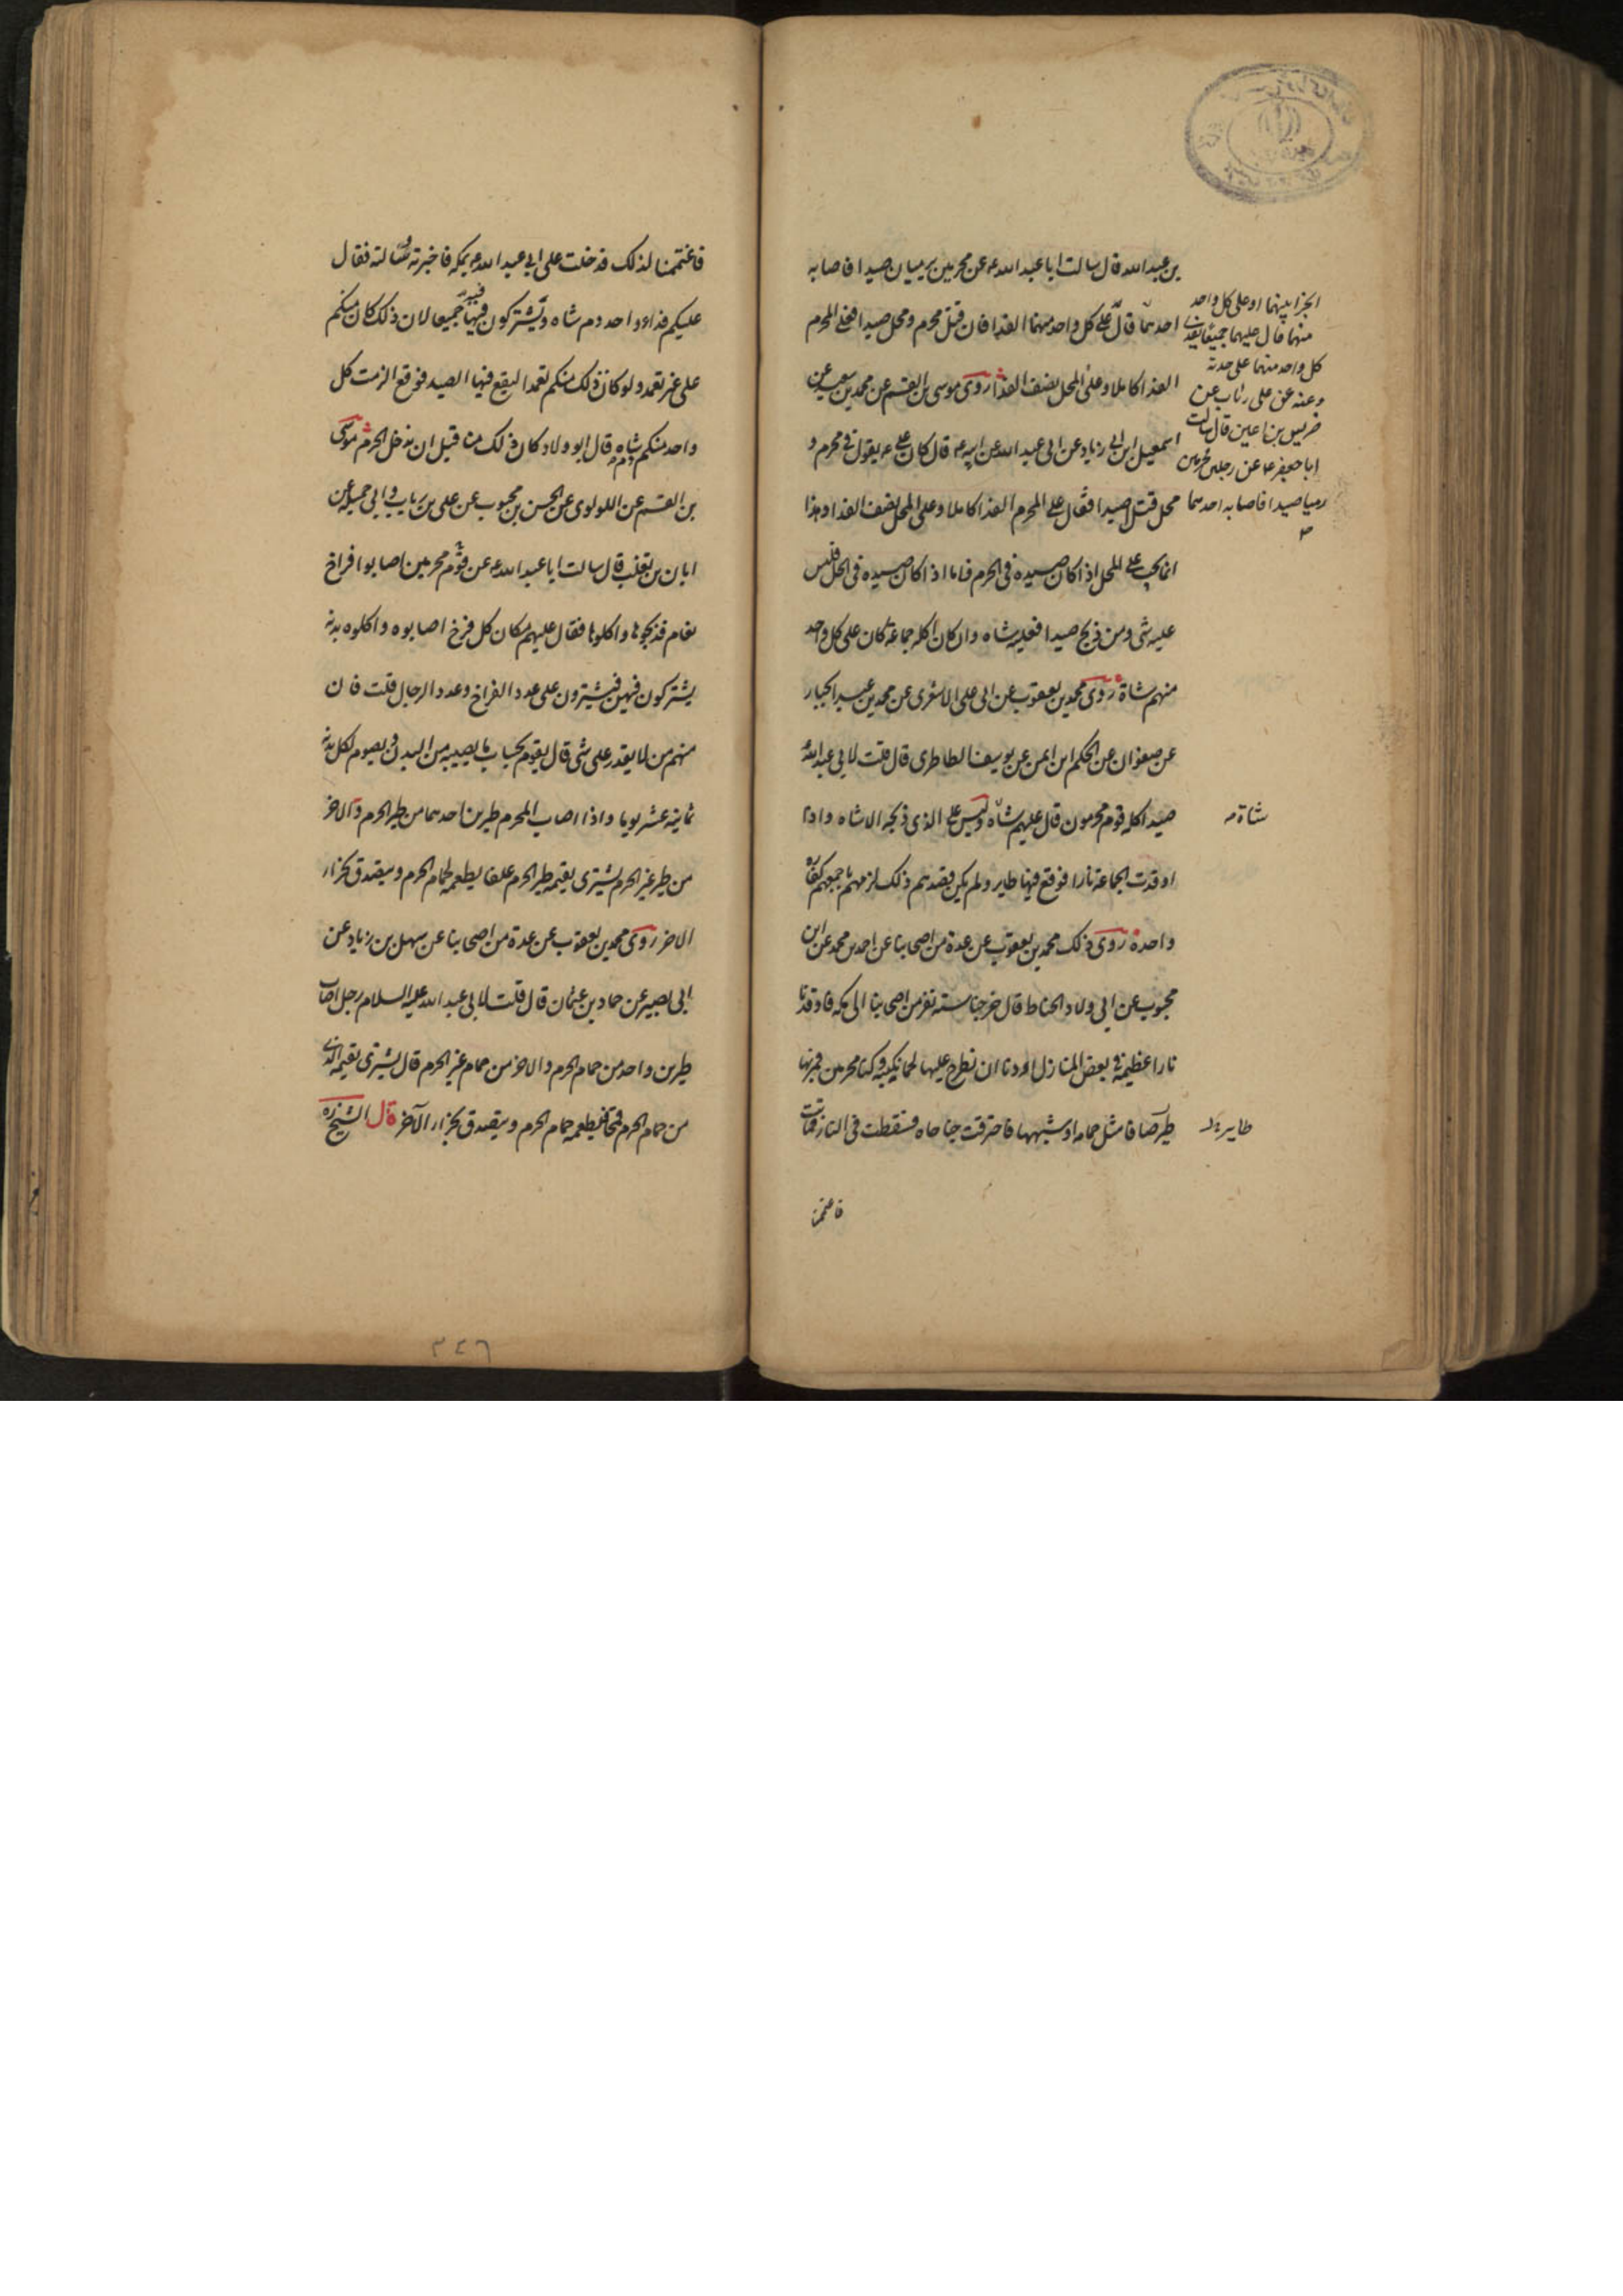 بن عبدالله قال سالت ابا عبد الله ع عن محرمين يرميان صيدا فاصابه
احدهما قال على كل واحد منهما الفدا فان قتل محرم ومحل صيدا فعلى المحرم
الفدا كاملا وعلى المحل نصف الفدا روى موسى بن القسم عن محمد بن سعيد عن
اسمعيل ابن ابي زياد عن ابى عبد الله عن ابيه ع قال كان على ع يقول فى محرم و
محل قتل صيدا فقال على المحرم الفدا كاملا وعلى المحل نصف الفدا وهذا
انما يجب على المحل اذا كان صيده فى الحرم فاما اذا كان صيده فى الحل فليس
عليه شى ومن ذبح صيدا فعليه شاه وان كان اكله جماعة كان على كل واحد
منهم شاة روى محمد بن يعقوب عن ابى على الاشعرى عن محمد بن عبد الجبار
عن صفوان عن الحكم ابن ايمن عن يوسف الطاطرى قال قلت لابي عبد الله
صيد اكله قوم محرمون قال عليهم شاه وليس على الذى ذبحه الا شاه واذا
اوقدت الجماعة نارا فوقع فيها طاير ولم يكن قصدهم ذلك لزمهم باجمعهم كفاره
واحدة روى ذلك محمد بن يعقوب عن عدة من اصحابنا عن احمد بن محمد عن ابن
محبوب عن ابي ولاد الحناط قال خرجنا سته نفر من اصحابنا الى مكه فاوقدنا
نارا عظيمة فى بعض المنازل اردنا ان نطرح عليها لحما نكببه وكنا محرمين فمر بها
طير صافا مثل حمامه او شبهها فاحترقت جناحاه فسقطت فى النار فماتت
فاغتممنا
الجزا بينهما او على كل واحد
منهما قال عليهما جميعا يفدى
كل واحد منهما على حدته
وعنه عن على رئاب عن
ضريس بن اعين قال سالت
ابا جعفر ع عن رجلين محرمين
رميا صيدا فاصابه احدهما
شاة
طاير
فاغتممنا لذلك فدخلت على ابي عبد الله ع بمكه فاخبرته وسالته فقال
عليكم فداء واحد دم شاه وتشتركون فيها جميعا لان ذلك كان منكم
على غير تعمد ولو كان ذلك منكم تعمدا ليقع فيها الصيد فوقع الزمت كل
واحد منكم دم شاه قال ابو ولاد كان ذلك منا قبل ان ندخل الحرم موسى
بن القسم عن اللولوى عن الحسن بن محبوب عن على بن رياب وابي جميله عن
ابان بن تغلب قال سالت ابا عبد الله ع عن قوم محرمين اصابوا افراخ
نعام فذبحوها واكلوها فقال عليهم مكان كل فرخ اصابوه واكلوه بدنه
يشتركون فيهن فيشترون على عدد الفراخ وعدد الرجال قلت فان
منهم من لا يقدر على شى قال يقوم بحساب ما يصيبه من البدن ويصوم لكل بدنه
ثمانية عشر يوما واذا اصاب المحرم طيرين احدهما من طير الحرم والاخر
من طير غير الحرم يشترى بقيمه طير الحرم علفا يطعمه لحمام الحرم ويتصدق بجزاء
الاخر روى محمد بن يعقوب عن عدة من اصحابنا عن سهل بن زياد عن
ابى بصير عن حماد بن عثمان قال قلت لابى عبد الله عليه السلام رجل اصاب
طيرين واحد من حمام الحرم والاخر من حمام غير الحرم قال يشترى بقيمة الذى
من حمام الحرم قمحا فيطعمه حمام الحرم ويتصدق بجزاء الآخر قال الشيخ ره
٣٤٦